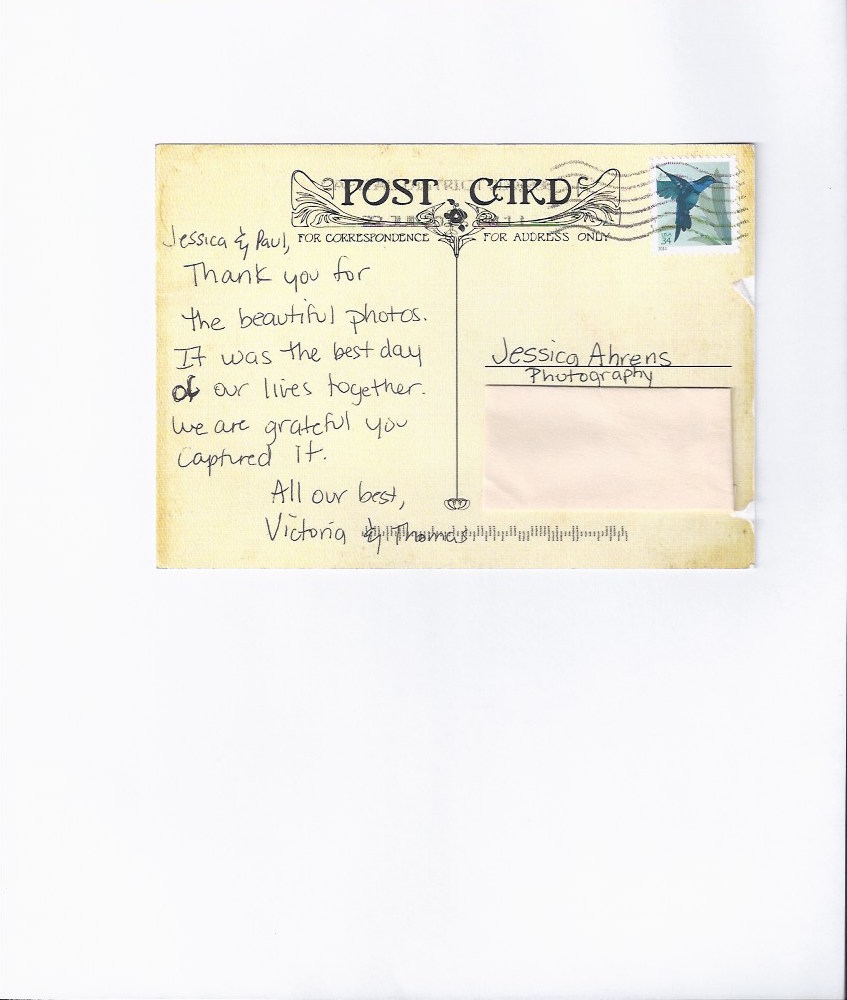 POST CARD
FOR CORRESPONDENCE
FOR ADDRESS ONLY
USA
34
Jessica & Paul,
Thank you for
the beautiful photos.
It was the best day
of our lives together.
We are grateful you
captured it.
All our best,
Victoria & Thomas
Jessica Ahrens
Photography